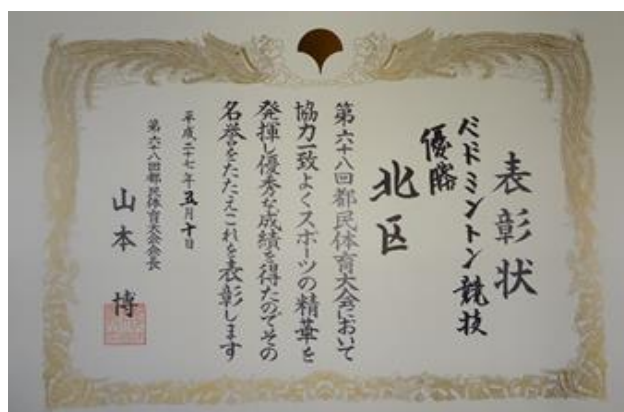 表彰状
バドミントン競技
優勝
北区
第六十八回都民体育大会において
協力一致よくスポーツの精華を
発揮し優秀な成績を得たのでその
名誉をたたえこれを表彰します
平成二十七年五月十日
第六十八回都民体育大会会長
山本 博